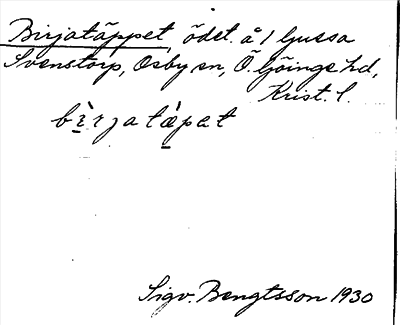 Birjatäppet, ödet. å 1 Ljussa
Svenstorp, Osby sn, Ö. Göinge hd,
Krist. l.
bìrjatæ̀pet
Sigv. Bengtsson 1930